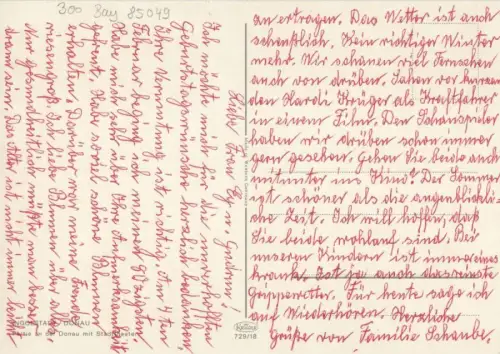 300 Bay 85049
Liebe Frau Ey u. Gudrun!
Ich möchte mich für die unverhofften
Geburtstagswünsche herzlich bedanken.
Ihre Vermutung ist richtig. Am 4ten
Februar beging ich meinen 60zigsten.
Habe mich sehr über Ihre Aufmerksamkeit
gefreut. Habe soviel schöne Blumen
erhalten. Darüber war meine Freude
riesengroß. Ich liebe Blumen über alles.
Nur gesundheitlich müßte man besser
dran sein. Das Alter ist nicht immer leicht
an ertragen. Das Wetter ist auch
scheußlich. Kein richtiger Winter
mehr. Wir schauen viel Fernsehen
auch von drüben. Sahen vor kurzem
den Hardi Krüger als Kraftfahrer
in einem Film. Den Schauspieler
haben wir drüben schon immer
gern gesehen. Gehen Sie beide auch
mitunter ins Kino? Der Sommer
ist schöner als die augenblickli-
che Zeit. Ich will hoffen, daß
Sie beide wohlauf sind. Bei
unseren Kindern ist immer eines
krank. Ist ja auch das reinste
Grippewetter. Für heute sage ich
auf Wiederhören. Herzliche
Grüße von Familie Schaube.
INGOLSTADT / DONAU
an der Donau mit Stadttheater
729/18